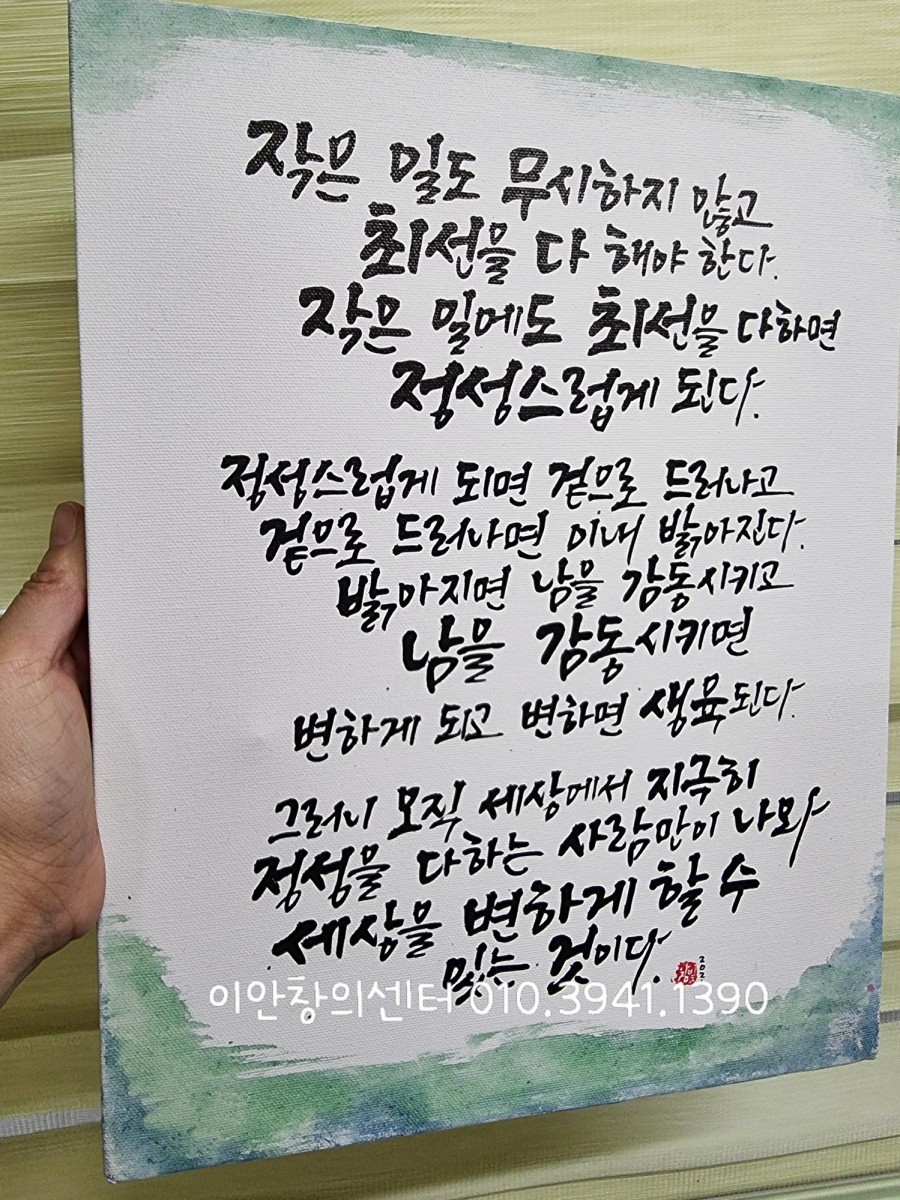 작은 일도 무시하지 않고
최선을 다 해야 한다.
작은 일에도 최선을 다하면
정성스럽게 된다.
정성스럽게 되면 겉으로 드러나고
겉으로 드러나면 이내 밝아진다.
밝아지면 남을 감동시키고
남을 감동시키면
변하게 되고 변하면 생육된다.
그러니 오직 세상에서 지극히
정성을 다하는 사람만이 나와
세상을 변하게 할 수
있는 것이다.
이안창의센터 010.3941.1390